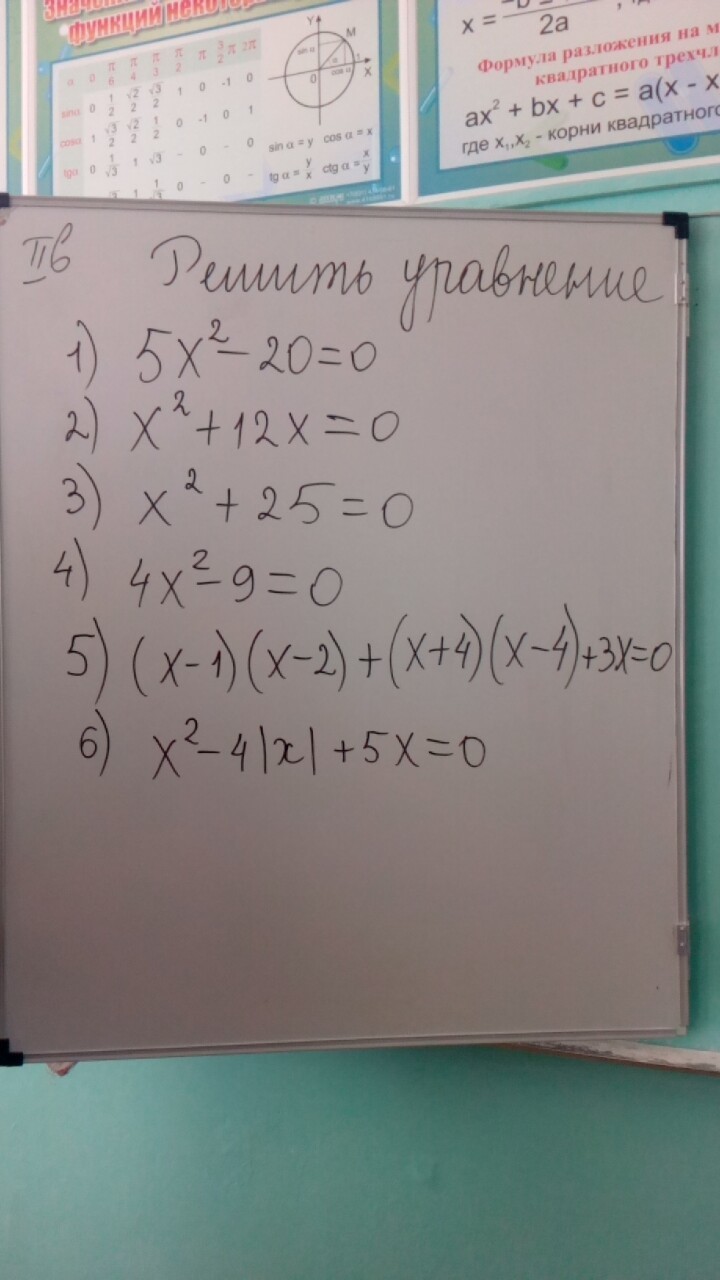 функций
α 0 π/6 π/4 π/3 π/2 π 3/2 π 2π
sinα 0 1/2 √2/2 √3/2 1 0 -1 0
cosα 1 √3/2 √2/2 1/2 0 -1 0 1
tgα 0 1/√3 1 √3 - 0 - 0
1 1/√3 0 - 0 -
Y M
sin α α 1
0 cos α X
sin α = y cos α = x
tg α = y/x ctg α = x/y
x =
2a
Формула разложения на м
квадратного трехчл
ax² + bx + c = a(x - x
где x₁,x₂ - корни квадратного
IIв Решить уравнение
1) 5x² - 20 = 0
2) x² + 12x = 0
3) x² + 25 = 0
4) 4x² - 9 = 0
5) (x-1)(x-2)+(x+4)(x-4)+3x=0
6) x² - 4|x| + 5x = 0